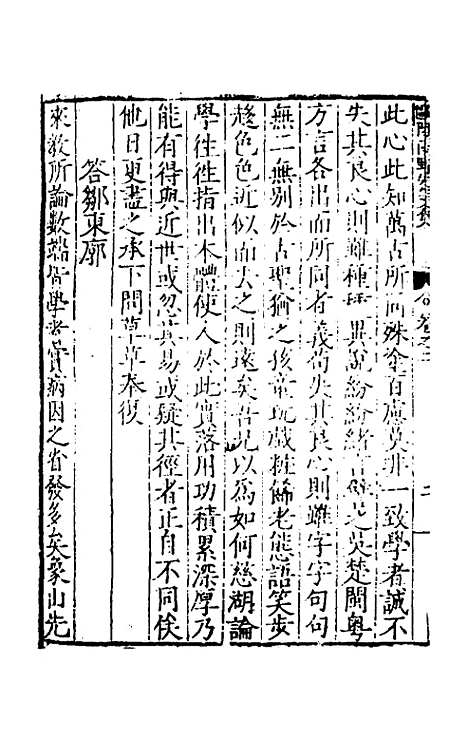 此心此知萬古所同殊途百慮莫非一致學者誠不
失其良心則雖種種異說紛紛緒言譬之吳楚閩粤
方言各出而所同者義苟失其良心則雖字字句句
無二無別於古聖猶之孩童玩戲粧飾老態語笑步
趨色色近似而去之則遠矣吾兄以爲如何慈湖論
學徃徃指出本體使人於此實落用功積累深厚乃
能有得與近世或忽其易或疑其徑者正自不同俟
他日更盡之承下問草草奉復
答鄒東廓
來教所論數端皆學者實病因之省發多矣象山先